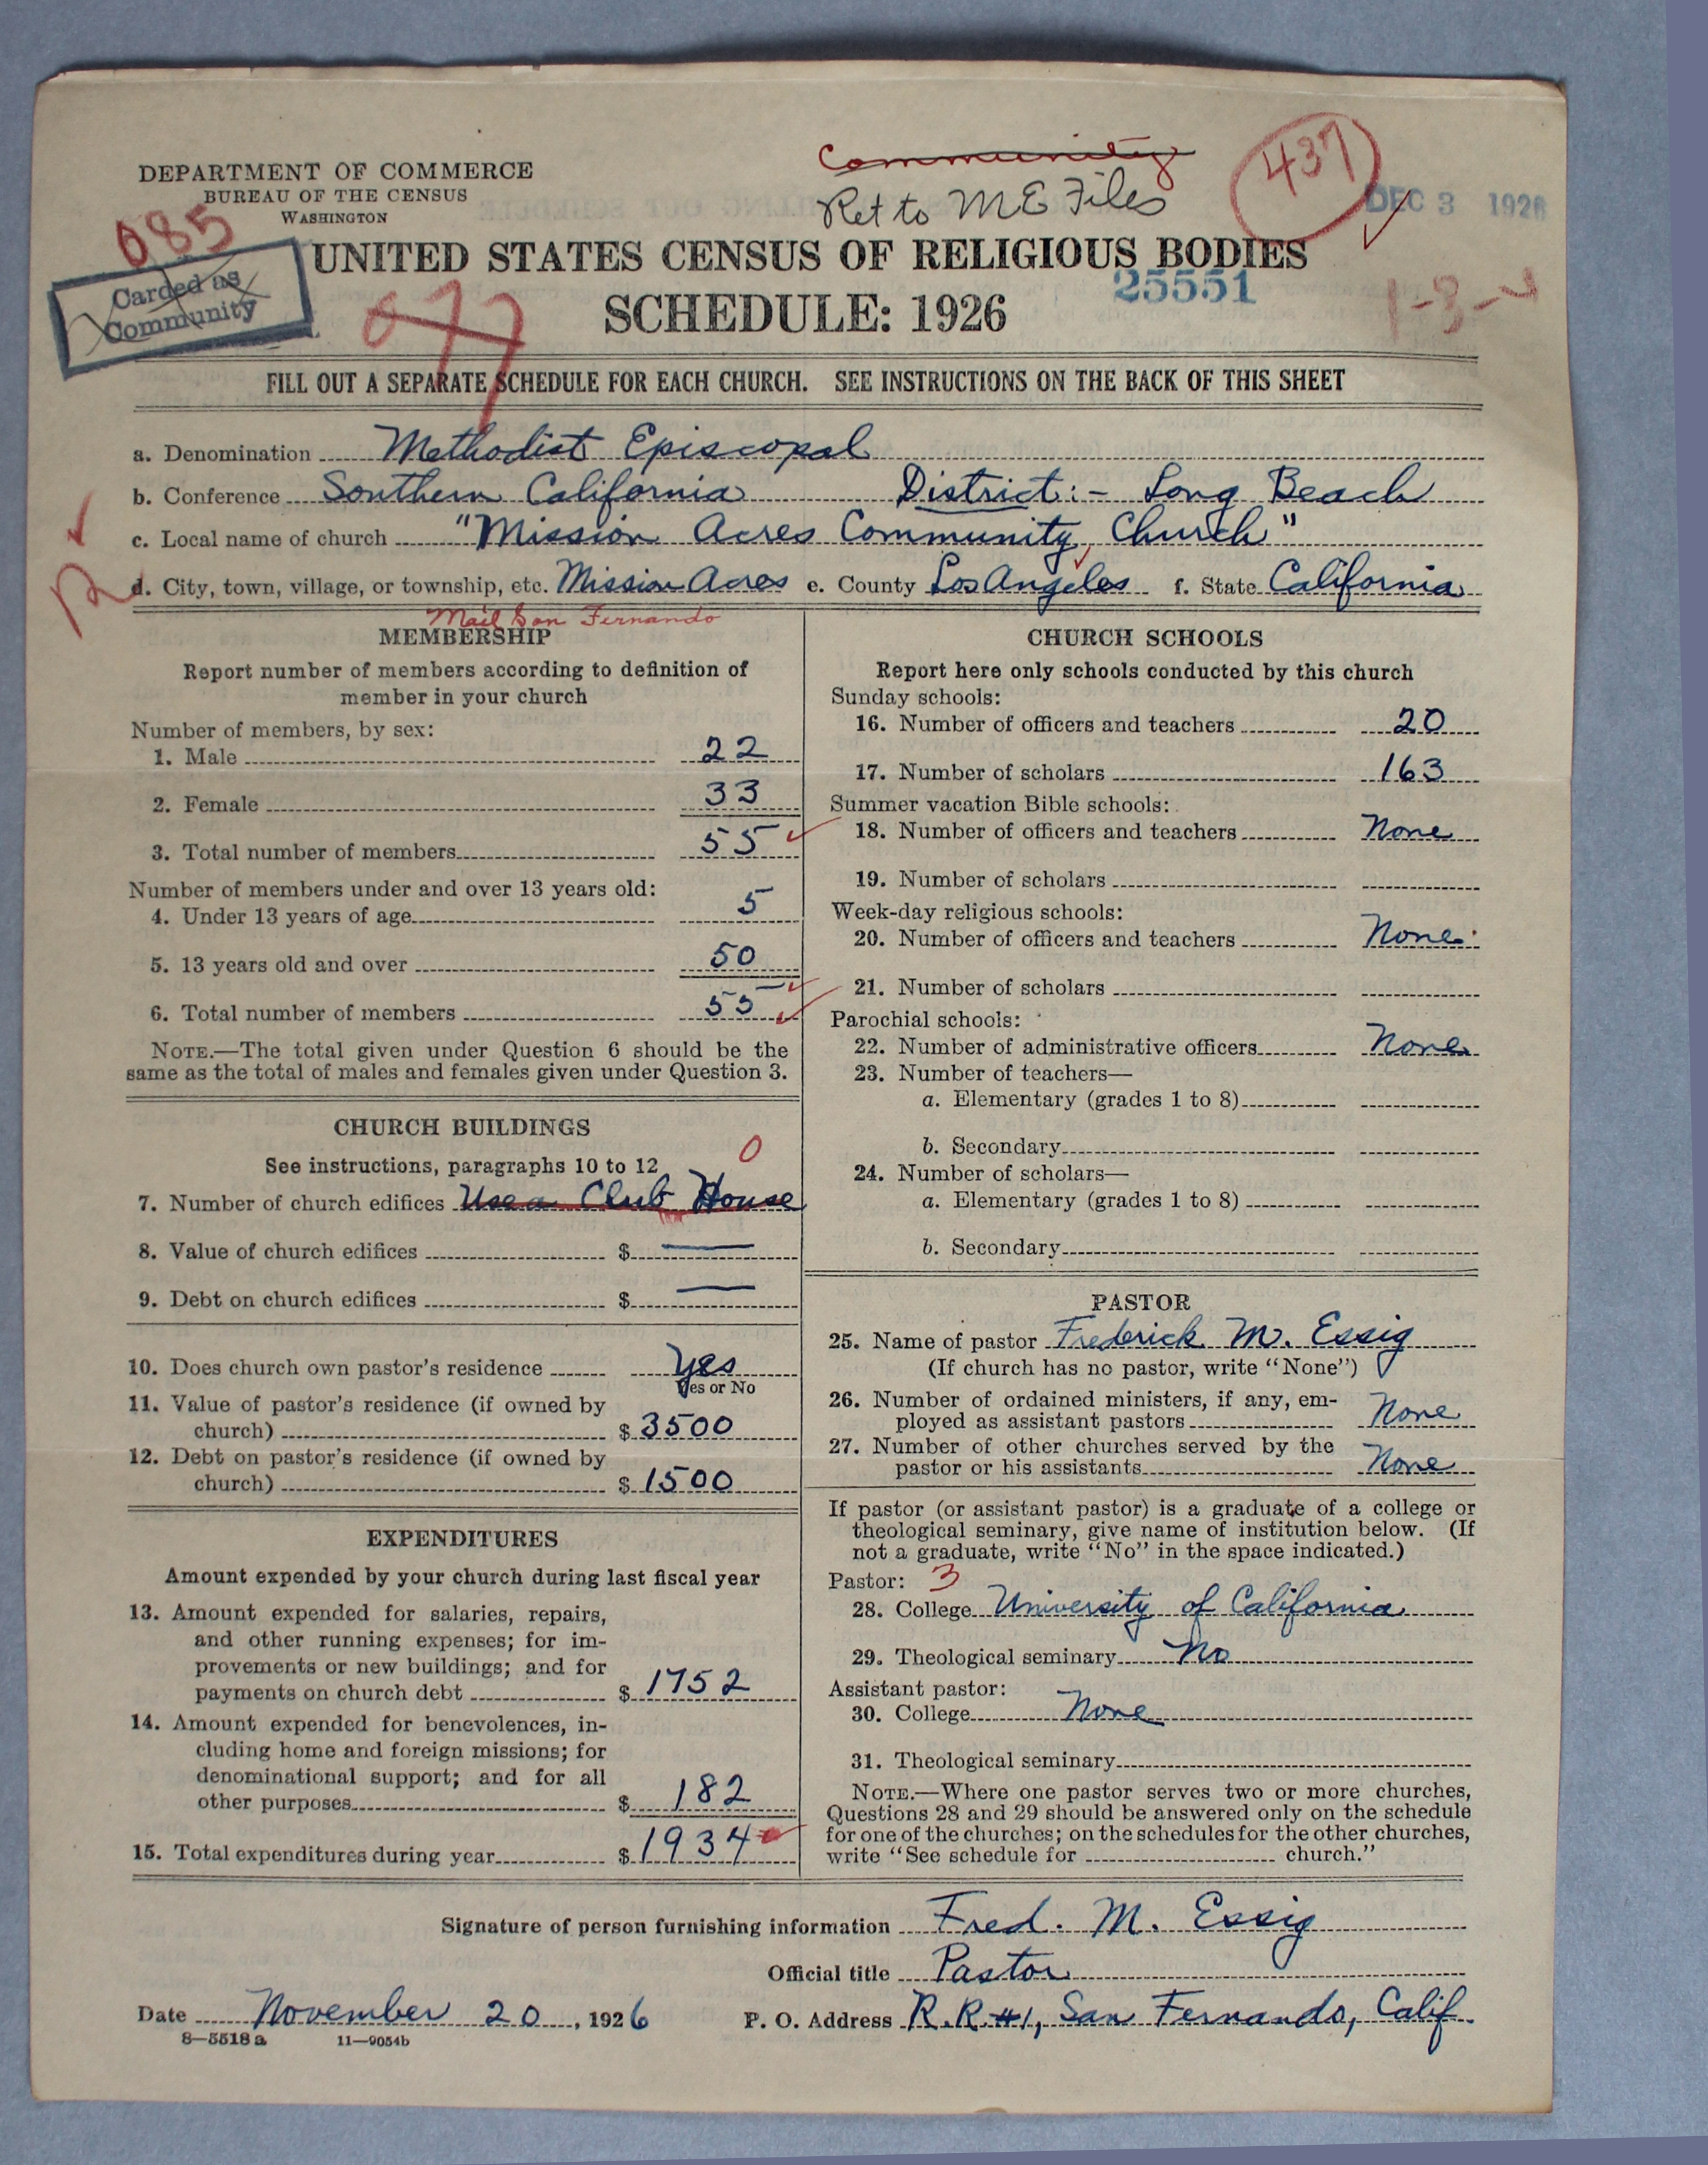 DEPARTMENT OF COMMERCE
BUREAU OF THE CENSUS
WASHINGTON
Community
Ret to ME Files
437
DEC 3 1926
085
Carded as
Community
UNITED STATES CENSUS OF RELIGIOUS BODIES
25551
SCHEDULE: 1926
1-3-
FILL OUT A SEPARATE SCHEDULE FOR EACH CHURCH. SEE INSTRUCTIONS ON THE BACK OF THIS SHEET
a. Denomination Methodist Episcopal
b. Conference Southern California District:- Long Beach
c. Local name of church "Mission Acres Community Church"
d. City, town, village, or township, etc. Mission Acres e. County Los Angeles f. State California
Mail San Fernando
MEMBERSHIP
Report number of members according to definition of
member in your church
Number of members, by sex:
1. Male 22
2. Female 33
3. Total number of members 55
Number of members under and over 13 years old:
4. Under 13 years of age 5
5. 13 years old and over 50
6. Total number of members 55
NOTE.—The total given under Question 6 should be the
same as the total of males and females given under Question 3.
CHURCH BUILDINGS
See instructions, paragraphs 10 to 12
0
7. Number of church edifices Use a Club House
8. Value of church edifices $ —
9. Debt on church edifices $ —
10. Does church own pastor's residence Yes
Yes or No
11. Value of pastor's residence (if owned by
church) $ 3500
12. Debt on pastor's residence (if owned by
church) $ 1500
EXPENDITURES
Amount expended by your church during last fiscal year
13. Amount expended for salaries, repairs,
and other running expenses; for im-
provements or new buildings; and for
payments on church debt $ 1752
14. Amount expended for benevolences, in-
cluding home and foreign missions; for
denominational support; and for all
other purposes $ 182
15. Total expenditures during year $ 1934
CHURCH SCHOOLS
Report here only schools conducted by this church
Sunday schools:
16. Number of officers and teachers 20
17. Number of scholars 163
Summer vacation Bible schools:
18. Number of officers and teachers None
19. Number of scholars
Week-day religious schools:
20. Number of officers and teachers None
21. Number of scholars
Parochial schools:
22. Number of administrative officers None
23. Number of teachers—
a. Elementary (grades 1 to 8)
b. Secondary
24. Number of scholars—
a. Elementary (grades 1 to 8)
b. Secondary
PASTOR
25. Name of pastor Frederick M. Essig
(If church has no pastor, write "None")
26. Number of ordained ministers, if any, em-
ployed as assistant pastors None
27. Number of other churches served by the
pastor or his assistants None
If pastor (or assistant pastor) is a graduate of a college or
theological seminary, give name of institution below. (If
not a graduate, write "No" in the space indicated.)
Pastor: 3
28. College University of California
29. Theological seminary No
Assistant pastor:
30. College None
31. Theological seminary
NOTE.—Where one pastor serves two or more churches,
Questions 28 and 29 should be answered only on the schedule
for one of the churches; on the schedules for the other churches,
write "See schedule for church."
Signature of person furnishing information Fred. M. Essig
Official title Pastor
Date November 20, 1926 P. O. Address R.R.#1, San Fernando, Calif.
8—5518 a 11—9054b